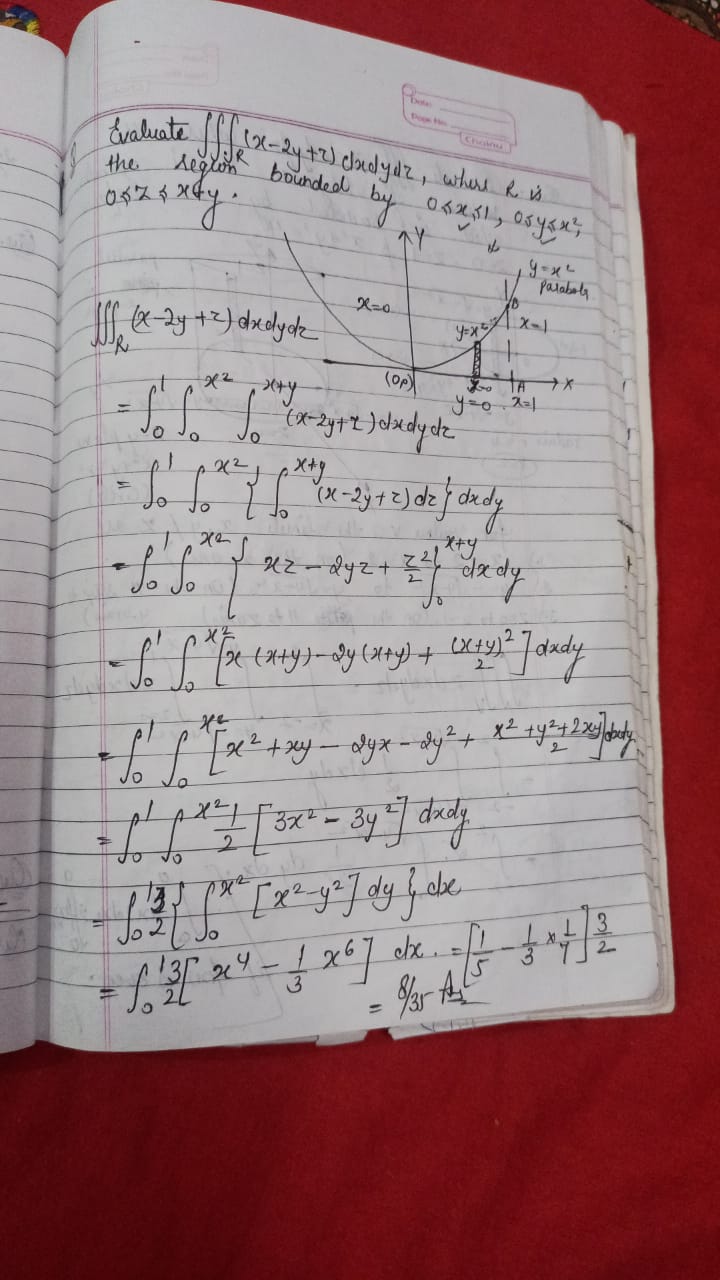 Date:
Page No.
Chalnu
Evaluate ∭_R (x-2y+z) dxdydz, where R is
the region bounded by 0≤x≤1, 0≤y≤x²,
0≤z≤x+y.
Y
y=x²
Parabola
B
x=0
y=x²
x=1
∭_R (x-2y+z) dxdydz
A
X
y=0
x=1
= ∫_0^1 ∫_0^{x²} ∫_0^{x+y} (x-2y+z) dxdydz
= ∫_0^1 ∫_0^{x²} { ∫_0^{x+y} (x-2y+z) dz } dxdy
= ∫_0^1 ∫_0^{x²} { xz - 2yz + z²/2 }_0^{x+y} dxdy
= ∫_0^1 ∫_0^{x²} [x (x+y) - 2y (x+y) + (x+y)²/2 ] dxdy
= ∫_0^1 ∫_0^{x²} [x² + xy - 2yx - 2y² + x² + y² + 2xy/2] dxdy
= ∫_0^1 ∫_0^{x²} 1/2 [3x² - 3y²] dxdy
= ∫_0^1 3/2 { ∫_0^{x²} [x²-y²] dy } dx
= ∫_0^1 3/2 [ x⁴ - 1/3 x⁶ ] dx. = [1/5 - 1/3 × 1/7] 3/2
= 8/35 Ans